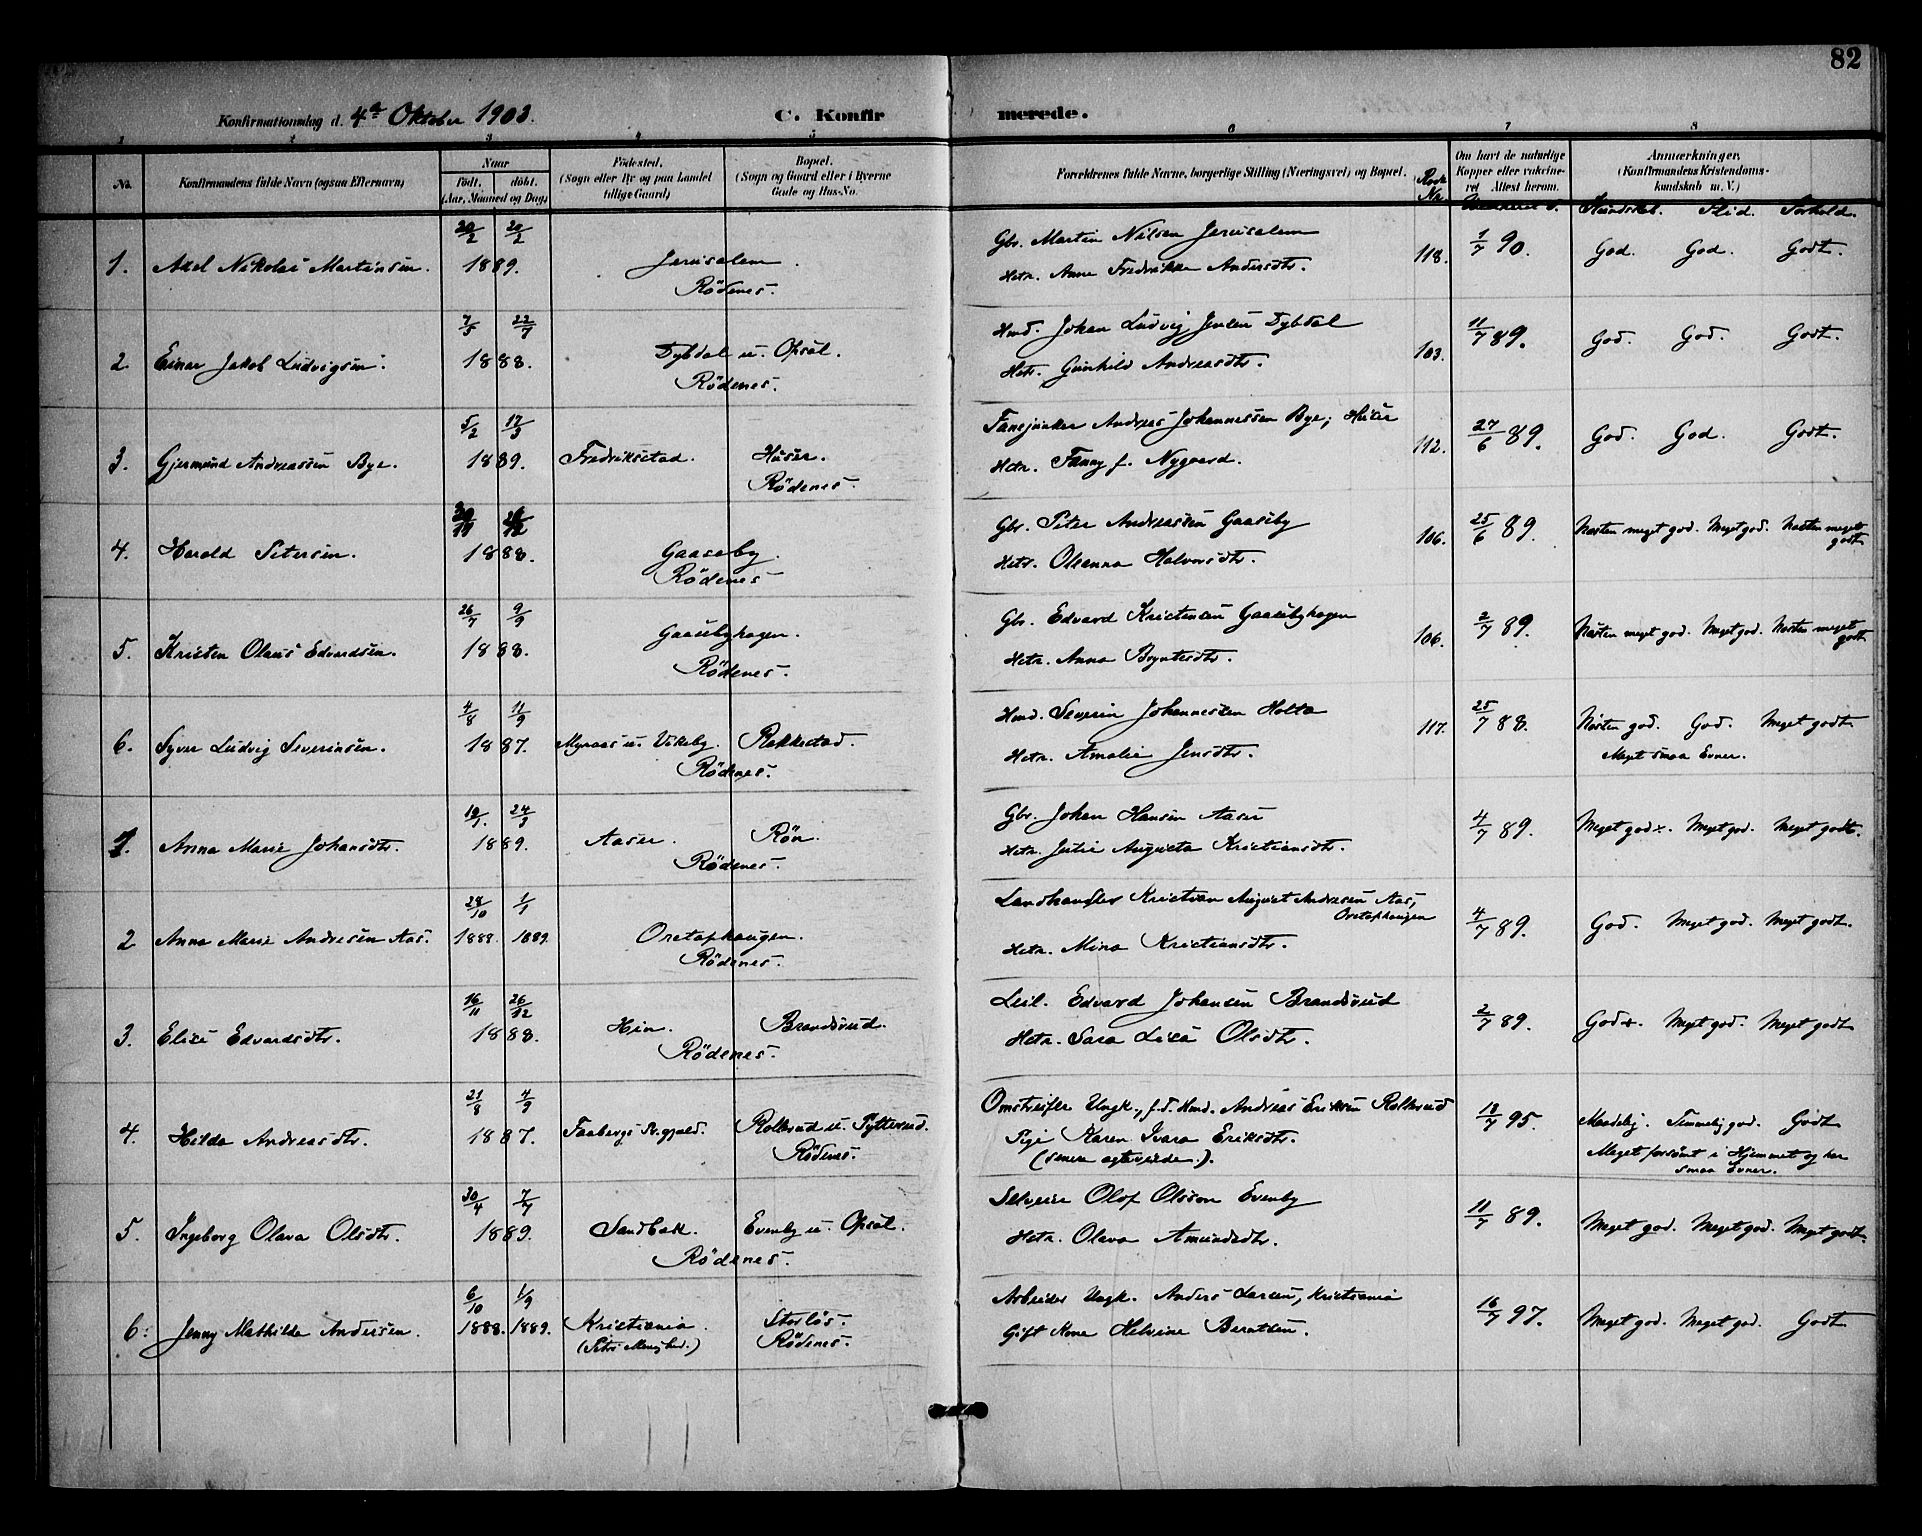 82
Konfirmationsdag d. 4de Oktober 1903. C. Konfirmerede.
1 2 3 4 5 6 7 8
No. Konfirmandens fulde Navn (ogsaa Efternavn) Naar født. døbt. (Aar, Maaned og Dag) Fødested. (Sogn eller By og paa Landet tillige Gaard) Bopæl. (Sogn og Gaard eller i Byerne Gade og Hus-No. Forældrenes fulde Navne, borgerlige Stilling (Næringsvei) og Bopæl. Rode No. Om havt de naturlige Kopper eller vakcineret. Attest herom. Anmærkninger. (Konfirmandens Kristendomskundskab m. V.)
Vaccineret d. Kundskab. Flid. Forhold.
20/2 20/2 Gbr. Martin Nilsen Jerusalem
1. Axel Nikolai Martinsen. 1889. Jerusalem. 118. 1/7 90. God. God. Godt.
Rödenes. Hstr. Anne Fredrikke Andersdtr.
7/5 22/7 Hmd. Johan Ludvig Jensen Dybdal
2. Einar Jakob Ludvigsen. 1888. Dybdal u. Opsal. 103. 11/7 89. God. God. Godt.
Rödenes. Hstr. Gunhild Andreasdtr.
5/2 17/3 Fanejunker Andreas Johannessen Bye, Huser
3. Gjermund Andreassen Bye. 1889. Fredriksstad. Huser. 112. 27/6 89. God. God. Godt.
Rödenes. Hstr. Fanny f. Nygaard.
Gbr. Peter Andreassen Gaaseby
4. Harald Petersen. 1888. Gaaseby 106. 25/6 89. Næsten meget god. Meget god. Næsten meget godt
Rödenes. Hstr. Oleanna Halvorsdtr.
26/7 9/9 Gbr. Edvard Kristensen Gaasebyhagen
5. Kristen Olaus Edvardsen. 1888. Gaasebyhagen. 106. 2/7 89. Næsten meget god. Meget god. Næsten meget godt.
Rödenes. Hstr. Anna Bryntesdtr.
4/8 11/9 Hmd. Severin Johannessen Holta
6. Syver Ludvig Severinsen. 1887. Myraas u. Vikeby. Rakkestad. 117. 25/7 88. Næsten god. God. Meget godt
Rödenes. Hstr. Amalie Jensdtr. Meget smaa Evner.
19/1. 24/3 Gbr. Johan Hansen Aaser
1. Anna Marie Johansdtr. 1889. Aaser. Rön. 4/7 89. Meget god. Meget god. Meget godt.
Rödenes. Hstr. Julie Augusta Kristiansdtr.
28/10 1/1 Landhandler Kristian August Andresen Aas, Orstaphaugen
2 Anna Marie Andresen Aas. 1888. 1889. Orstaphaugen. 4/7 89. God. Meget god. Meget godt.
Rödenes. Hstr. Mina Kristiansdtr.
16/11 26/12 Leil. Edvard Johansen Brandsrud
3. Elise Edvardsdtr. 1888. Hin. Brandsrud. 2/7 89. God. Meget god. Meget godt
Rödenes. Hstr. Sara Lisa Olsdtr.
21/8 4/9 Omstreifer Ungk., f.d. Hmd. Andreas Eriksen Rolkrud
4. Hilda Andreasdtr. 1887. Faabergs Pr.gjæld. Rolkrud u. Pytterud. 18/7 95. Maadelig. Temmelig god. Godt
Rödenes. Pige Karen Ivara Eriksdtr. Meget forsömt i Hjemmet og har
(senere egteviede.). smaa Evner.
30/4 7/7 Selveier Olof Olsson Evenby
5. Ingeborg Olava Olsdtr. 1889. Sandbæk. Evenby u. Opsal. 11/7 89. Meget god. Meget god. Meget godt.
Rödenes. Hstr. Olava Amundsdtr.
6/10 1/9 Arbeider Ungk. Anders Larsen, Kristiania
6. Jenny Mathilde Andersen. 1888. 1889. Kristiania. Storlös. 16/7 97. Meget god. Meget god. Godt
(Petri Menighed.) Rödenes. Gift Kone Helvine Berntsen.